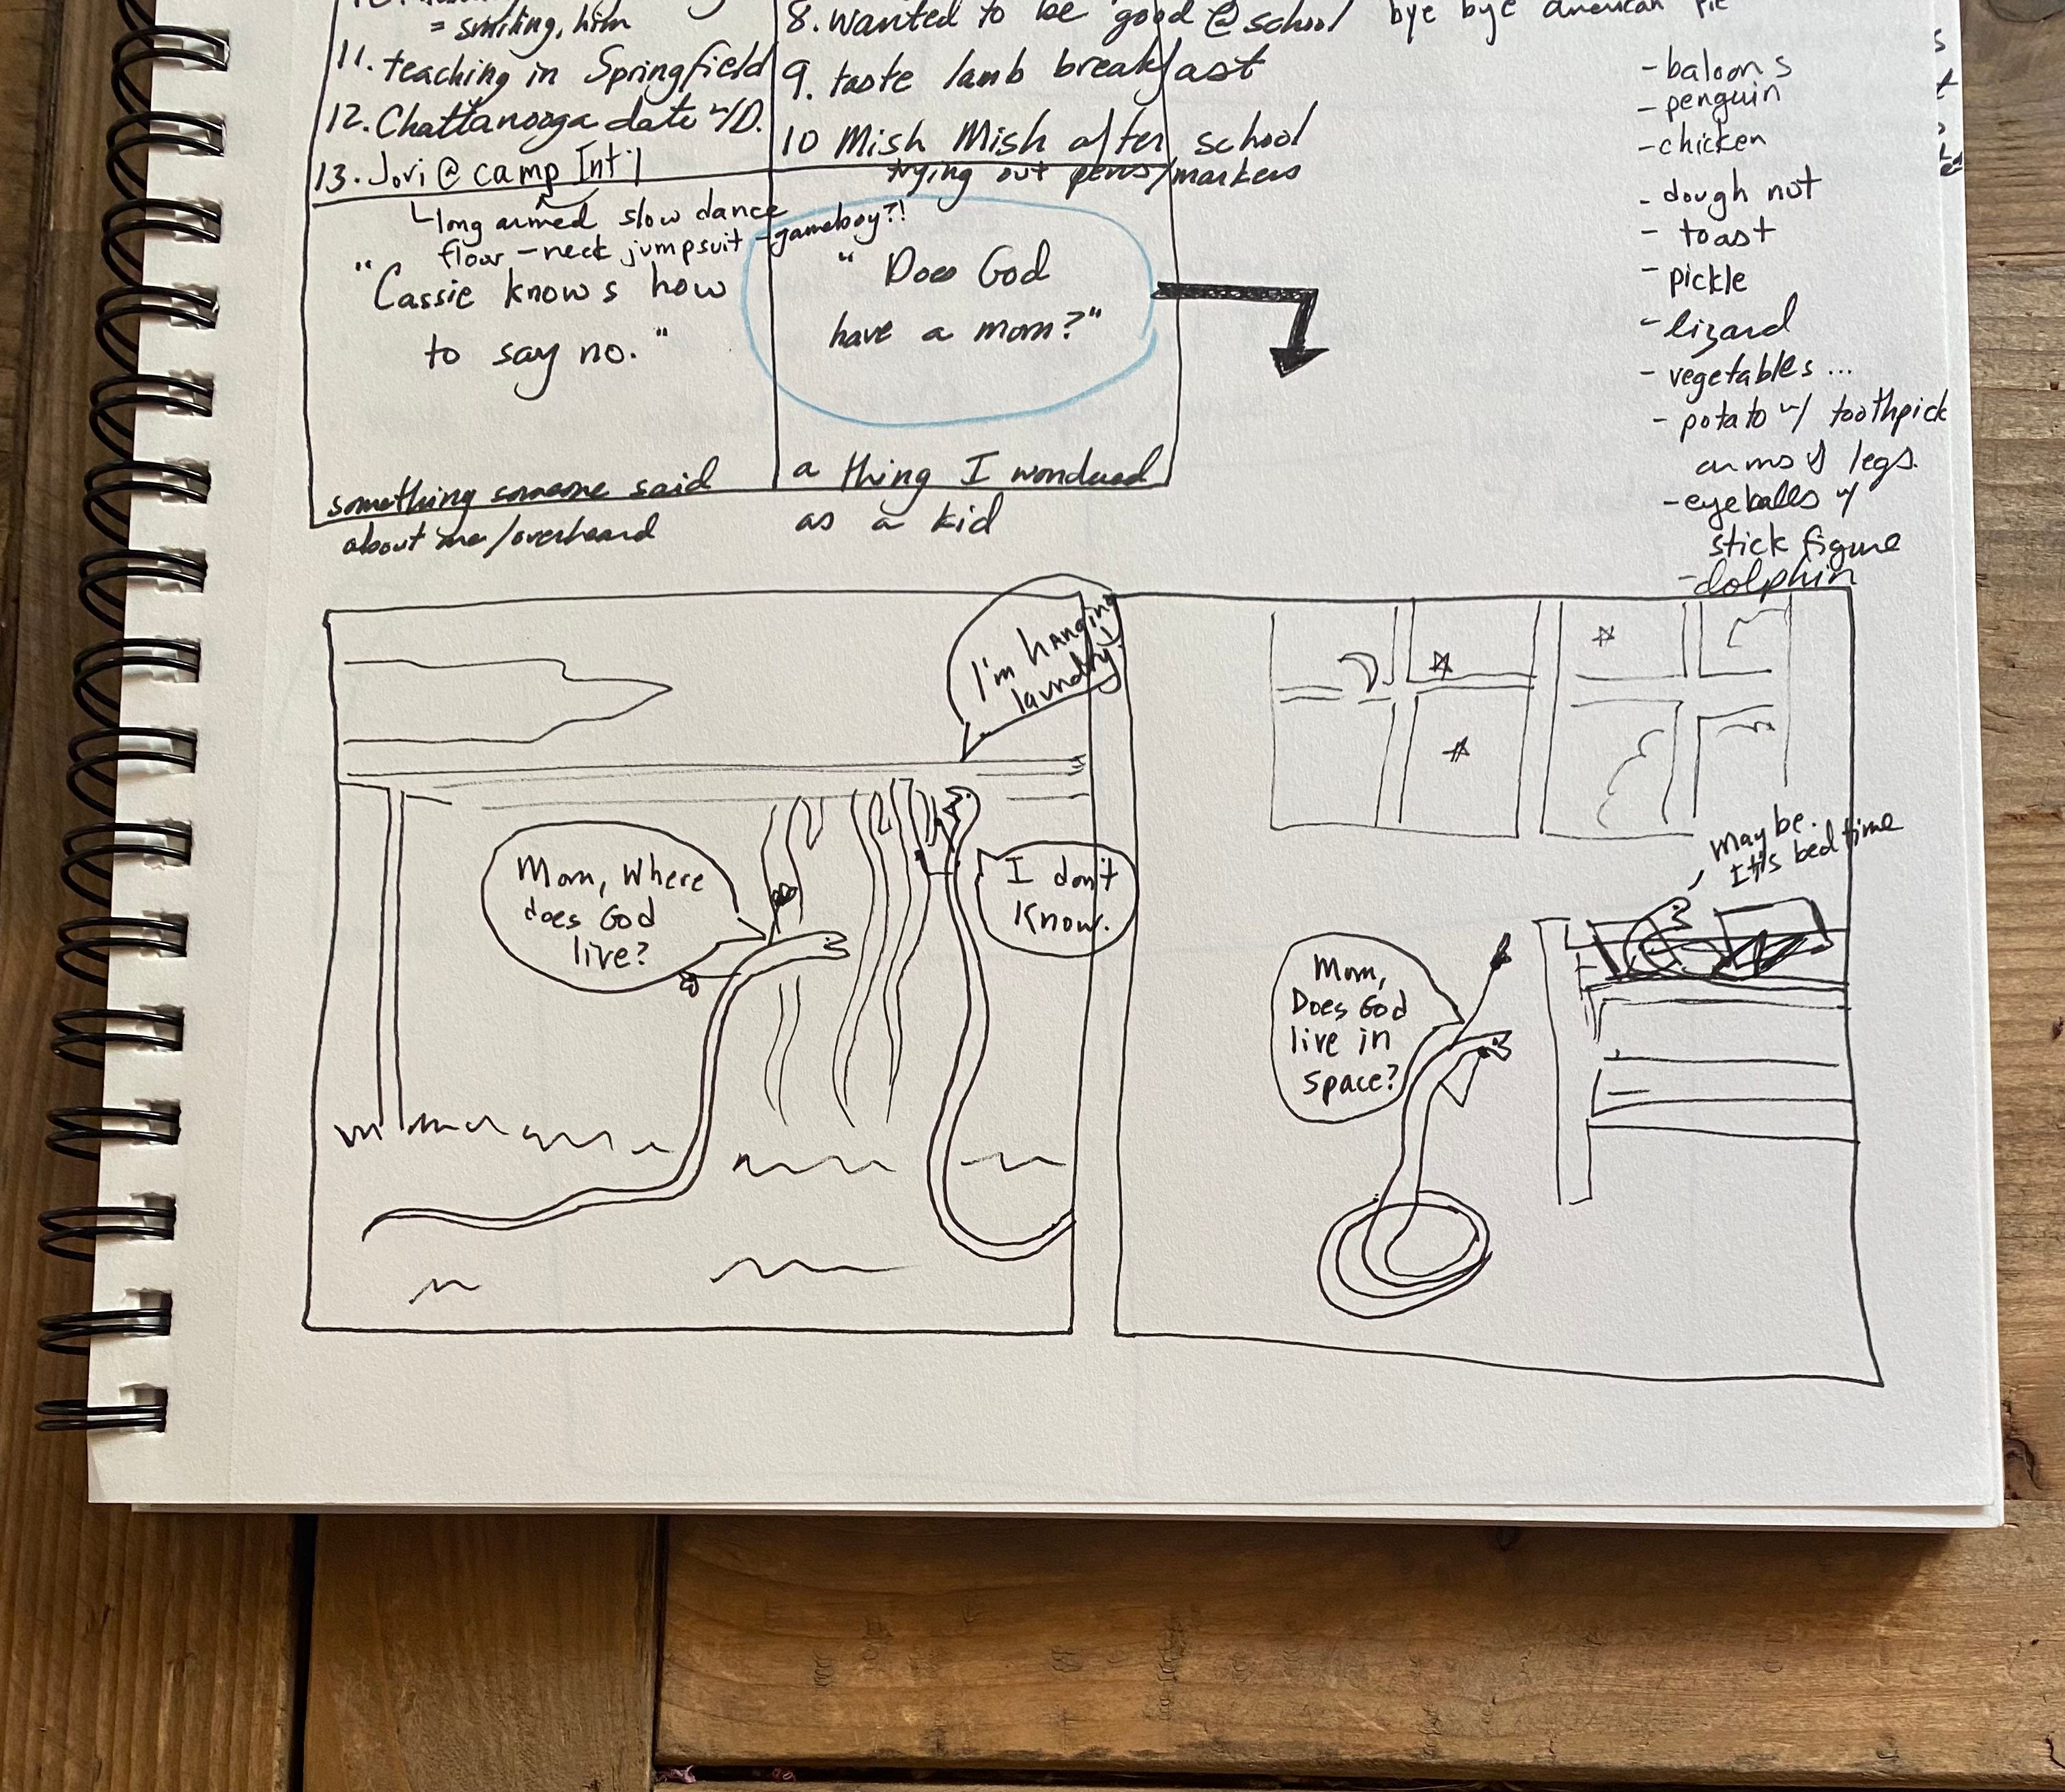 = smiling, him
11. teaching in Springfield
12. Chattanooga date w/D.
13. Jori @ camp Int'l
long armed slow dance
floor - neck jumpsuit - gameboy?!
"Cassie knows how
to say no."
something someone said
about me/overheard
8. wanted to be good @ school
9. taste lamb breakfast
10 Mish Mish after school
trying out pens/markers
"Does God
have a mom?"
a thing I wondered
as a kid
bye bye american pie
- baloons
- penguin
- chicken
- dough nut
- toast
- pickle
- lizard
- vegetables ...
- potato w/ toothpick
arms & legs.
- eyeballs w/
stick figure
- dolphin
I'm hanging
laundry!
Mom, Where
does God
live?
I don't
Know.
Mom,
Does God
live in
space?
maybe.
It's bed time